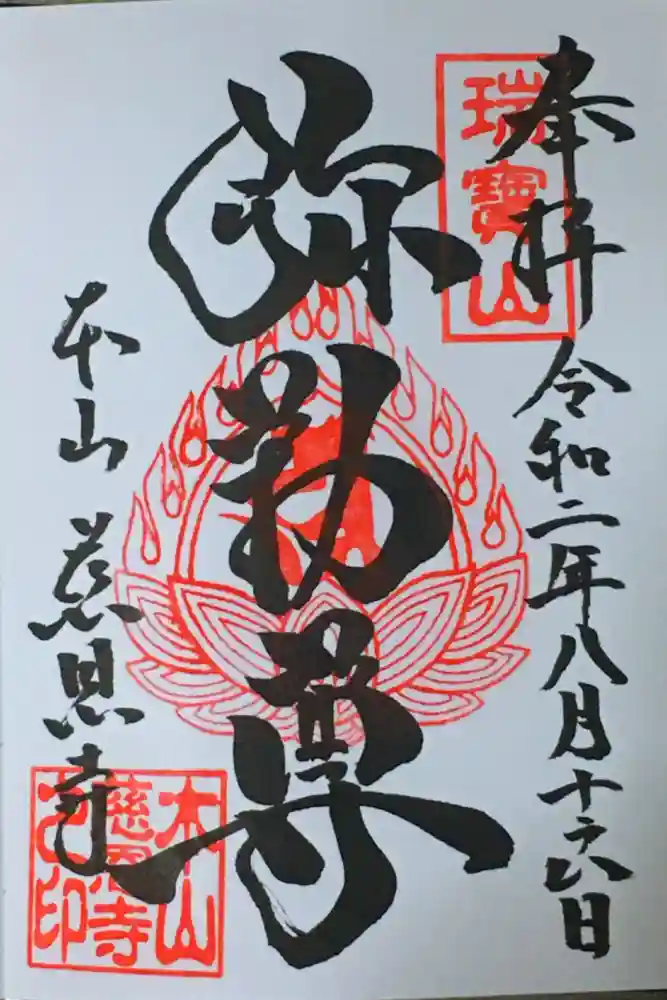 奉拝 令和二年八月十六日
瑞寶山
弥勒尊
本山 慈恩寺
本山
慈恩寺
之印